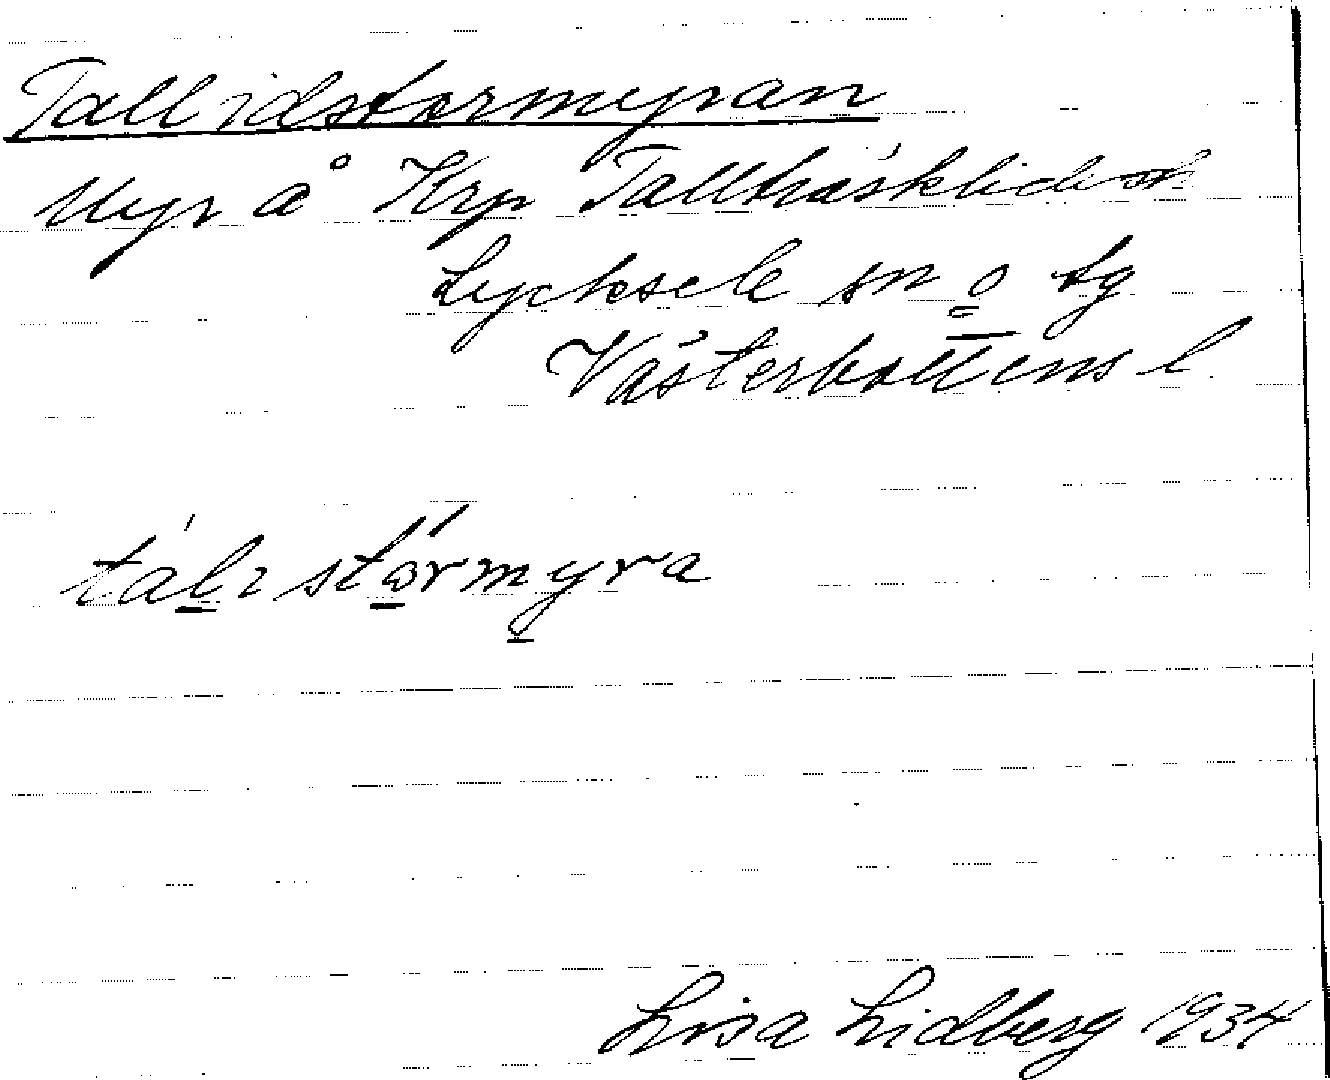 Tallidstormyran
Myr å Krp Tallträskliden
Lycksele sn o tg
Västerbottens l.
tálistórmyra
Lisa Lidberg 1934